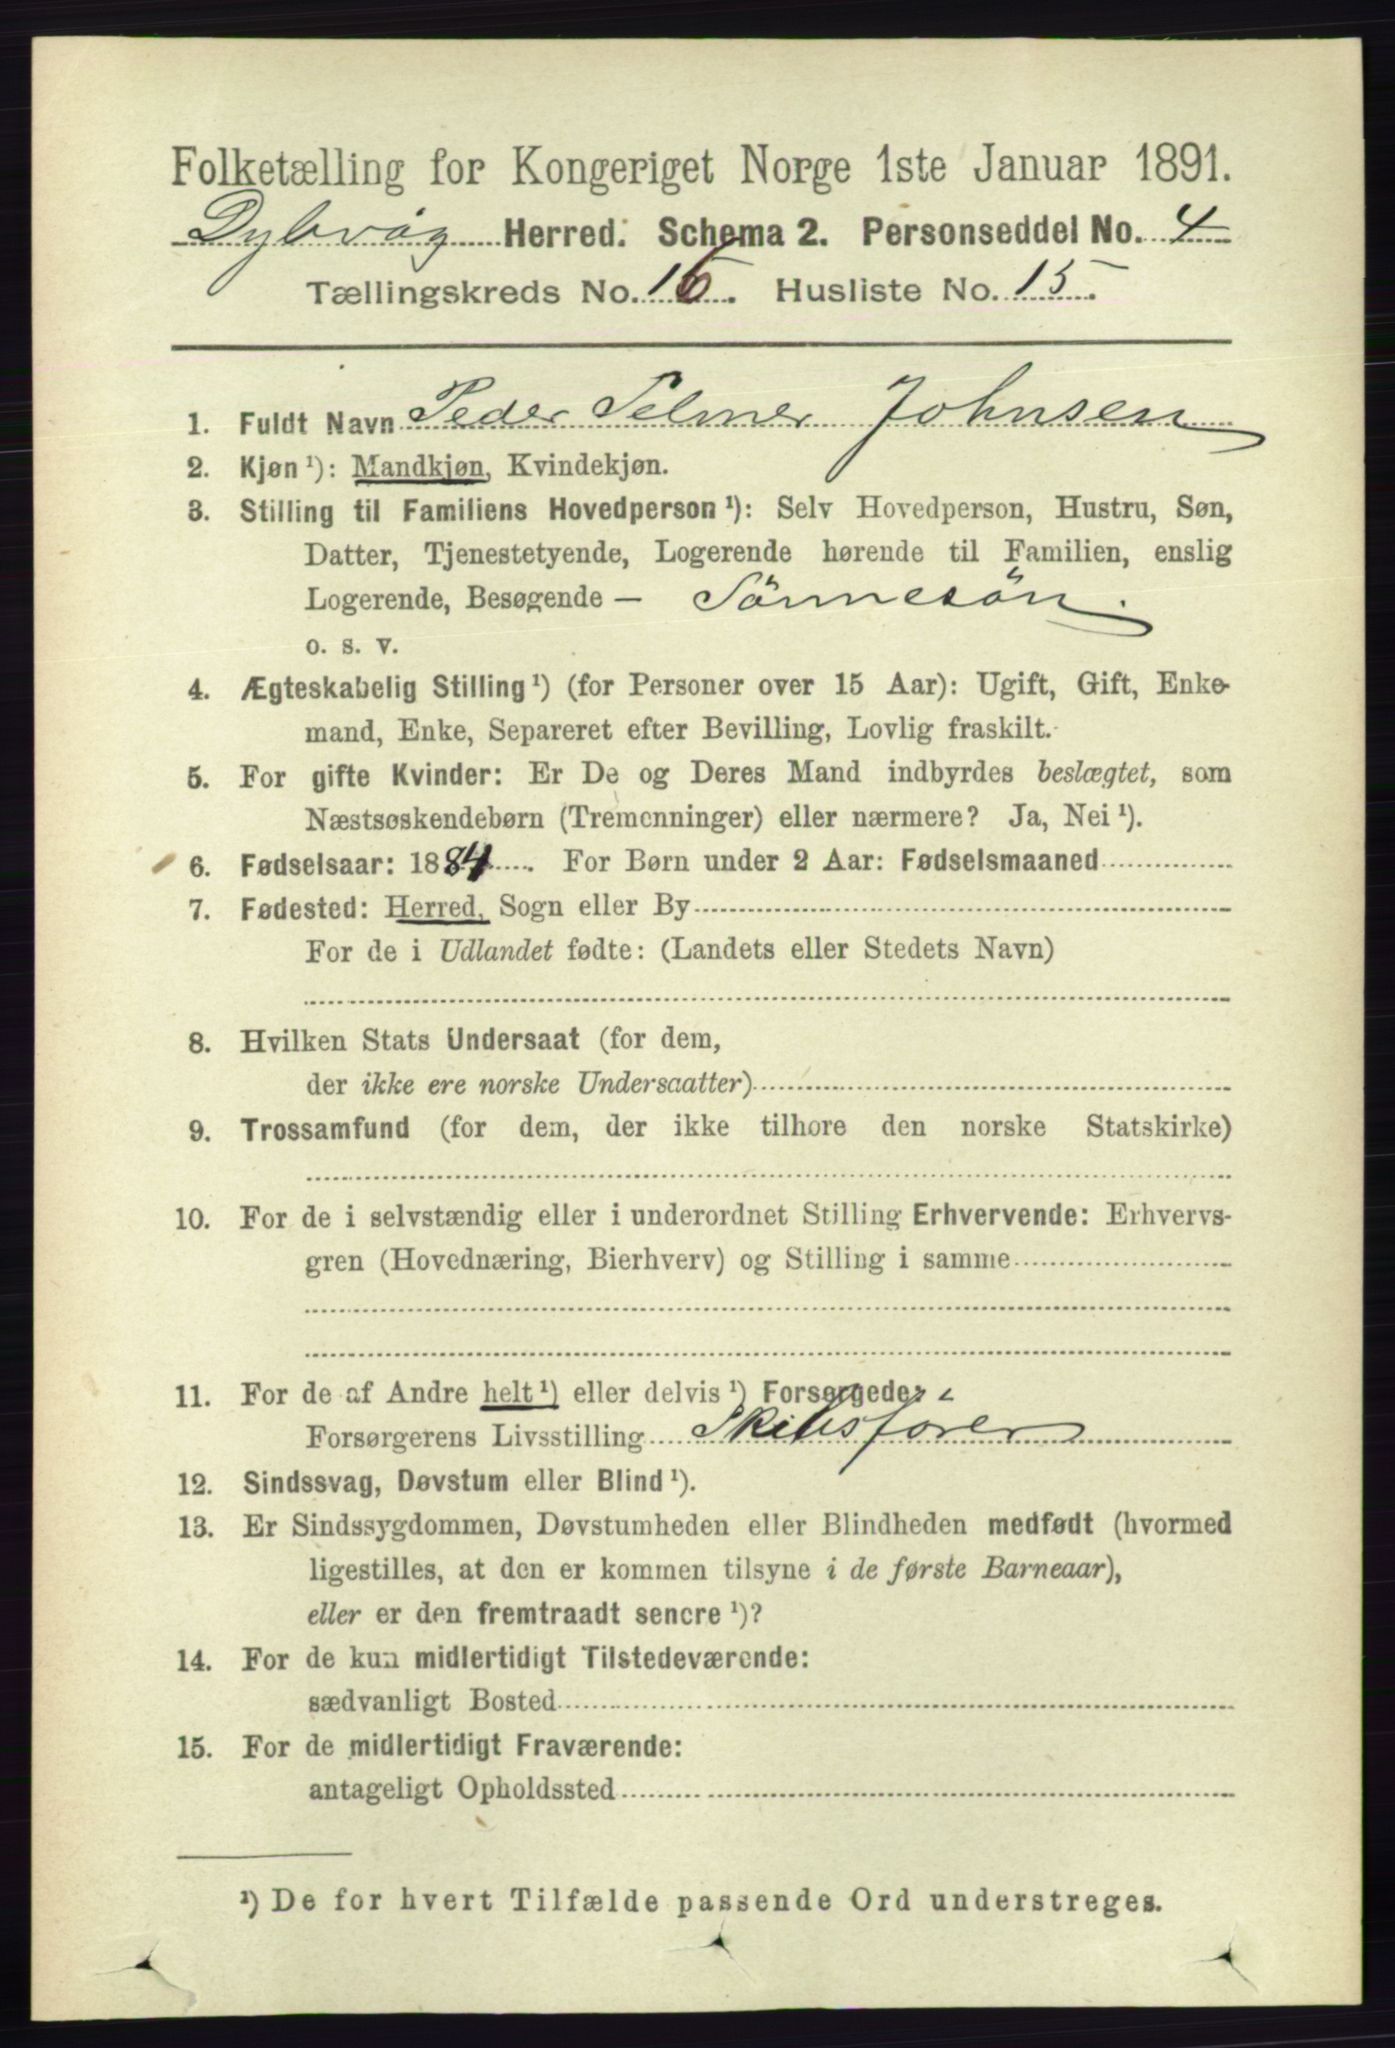 Folketælling for Kongeriget Norge 1ste Januar 1891.
Dybvåg Herred. Schema 2. Personseddel No. 4
Tællingskreds No. 16. Husliste No. 15.
1. Fuldt Navn Peder Selmer Johnsen
2. Kjøn ¹): Mandkjøn, Kvindekjøn.
3. Stilling til Familiens Hovedperson ¹): Selv Hovedperson, Hustru, Søn,
Datter, Tjenestetyende, Logerende hørende til Familien, enslig
Logerende, Besøgende – Sönnesön.
o. s. v.
4. Ægteskabelig Stilling ¹) (for Personer over 15 Aar): Ugift, Gift, Enke-
mand, Enke, Separeret efter Bevilling, Lovlig fraskilt.
5. For gifte Kvinder: Er De og Deres Mand indbyrdes beslægtet, som
Næstsøskendebørn (Tremenninger) eller nærmere? Ja, Nei ¹).
6. Fødselsaar: 1884. For Børn under 2 Aar: Fødselsmaaned
7. Fødested: Herred, Sogn eller By
For de i Udlandet fødte: (Landets eller Stedets Navn)
8. Hvilken Stats Undersaat (for dem,
der ikke ere norske Undersaatter)
9. Trossamfund (for dem, der ikke tilhore den norske Statskirke)
10. For de i selvstændig eller i underordnet Stilling Erhvervende: Erhvervs-
gren (Hovednæring, Bierhverv) og Stilling i samme
11. For de af Andre helt ¹) eller delvis ¹) Forsørgede:
Forsørgerens Livsstilling Skibsförer
12. Sindssvag, Døvstum eller Blind ¹).
13. Er Sindssygdommen, Døvstumheden eller Blindheden medfødt (hvormed
ligestilles, at den er kommen tilsyne i de første Barneaar),
eller er den fremtraadt senere ¹)?
14. For de kun midlertidigt Tilstedeværende:
sædvanligt Bosted
15. For de midlertidigt Fraværende:
antageligt Opholdssted
¹) De for hvert Tilfælde passende Ord understreges.